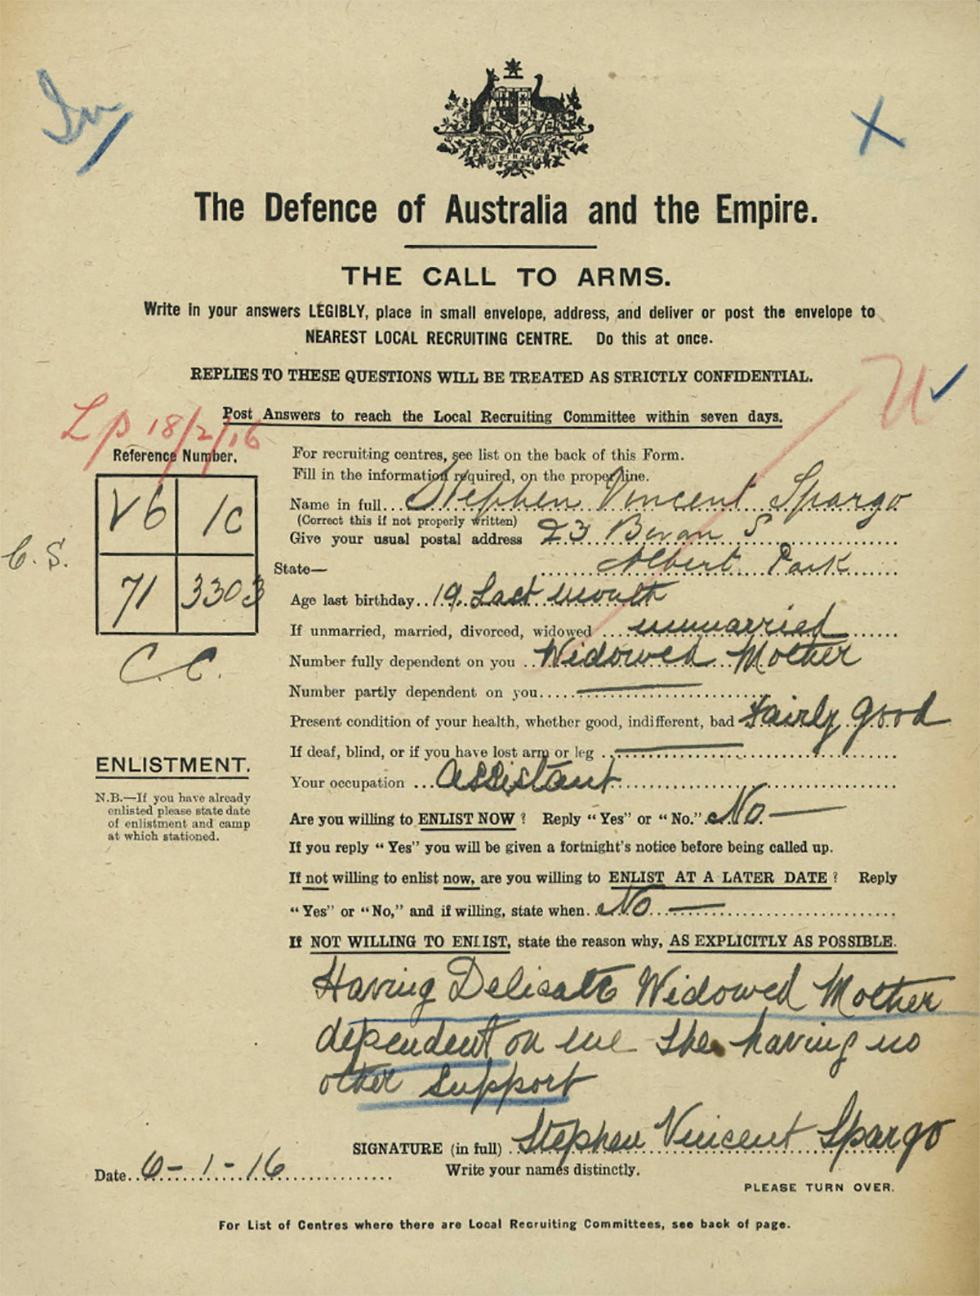 In
X
The Defence of Australia and the Empire.
THE CALL TO ARMS.
Write in your answers LEGIBLY, place in small envelope, address, and deliver or post the envelope to
NEAREST LOCAL RECRUITING CENTRE. Do this at once.
REPLIES TO THESE QUESTIONS WILL BE TREATED AS STRICTLY CONFIDENTIAL.
U
Post Answers to reach the Local Recruiting Committee within seven days.
Lp 18/2/16
Reference Number.
V6 1c
71 3303
C. S.
C. C.
For recruiting centres, see list on the back of this Form.
Fill in the information required, on the proper line.
Name in full... Stephen Vincent Spargo
(Correct this if not properly written)
Give your usual postal address 23 Bevan S
Albert Park
State—
Age last birthday.. 19. Last month
If unmarried, married, divorced, widowed ... unmarried
Number fully dependent on you .. Widowed Mother
Number partly dependent on you.....
Present condition of your health, whether good, indifferent, bad Fairly good
If deaf, blind, or if you have lost arm or leg ..
Your occupation ... Assistant
Are you willing to ENLIST NOW? Reply "Yes" or "No." No. —
If you reply "Yes" you will be given a fortnight's notice before being called up.
If not willing to enlist now, are you willing to ENLIST AT A LATER DATE? Reply
"Yes" or "No," and if willing, state when. No —
If NOT WILLING TO ENLIST, state the reason why, AS EXPLICITLY AS POSSIBLE.
Having Delicate Widowed Mother
dependent on me She having no
other support
ENLISTMENT.
N.B.—If you have already
enlisted please state date
of enlistment and camp
at which stationed.
SIGNATURE (in full) .. Stephen Vincent Spargo
Write your names distinctly.
Date.. 6-1-16
PLEASE TURN OVER.
For List of Centres where there are Local Recruiting Committees, see back of page.